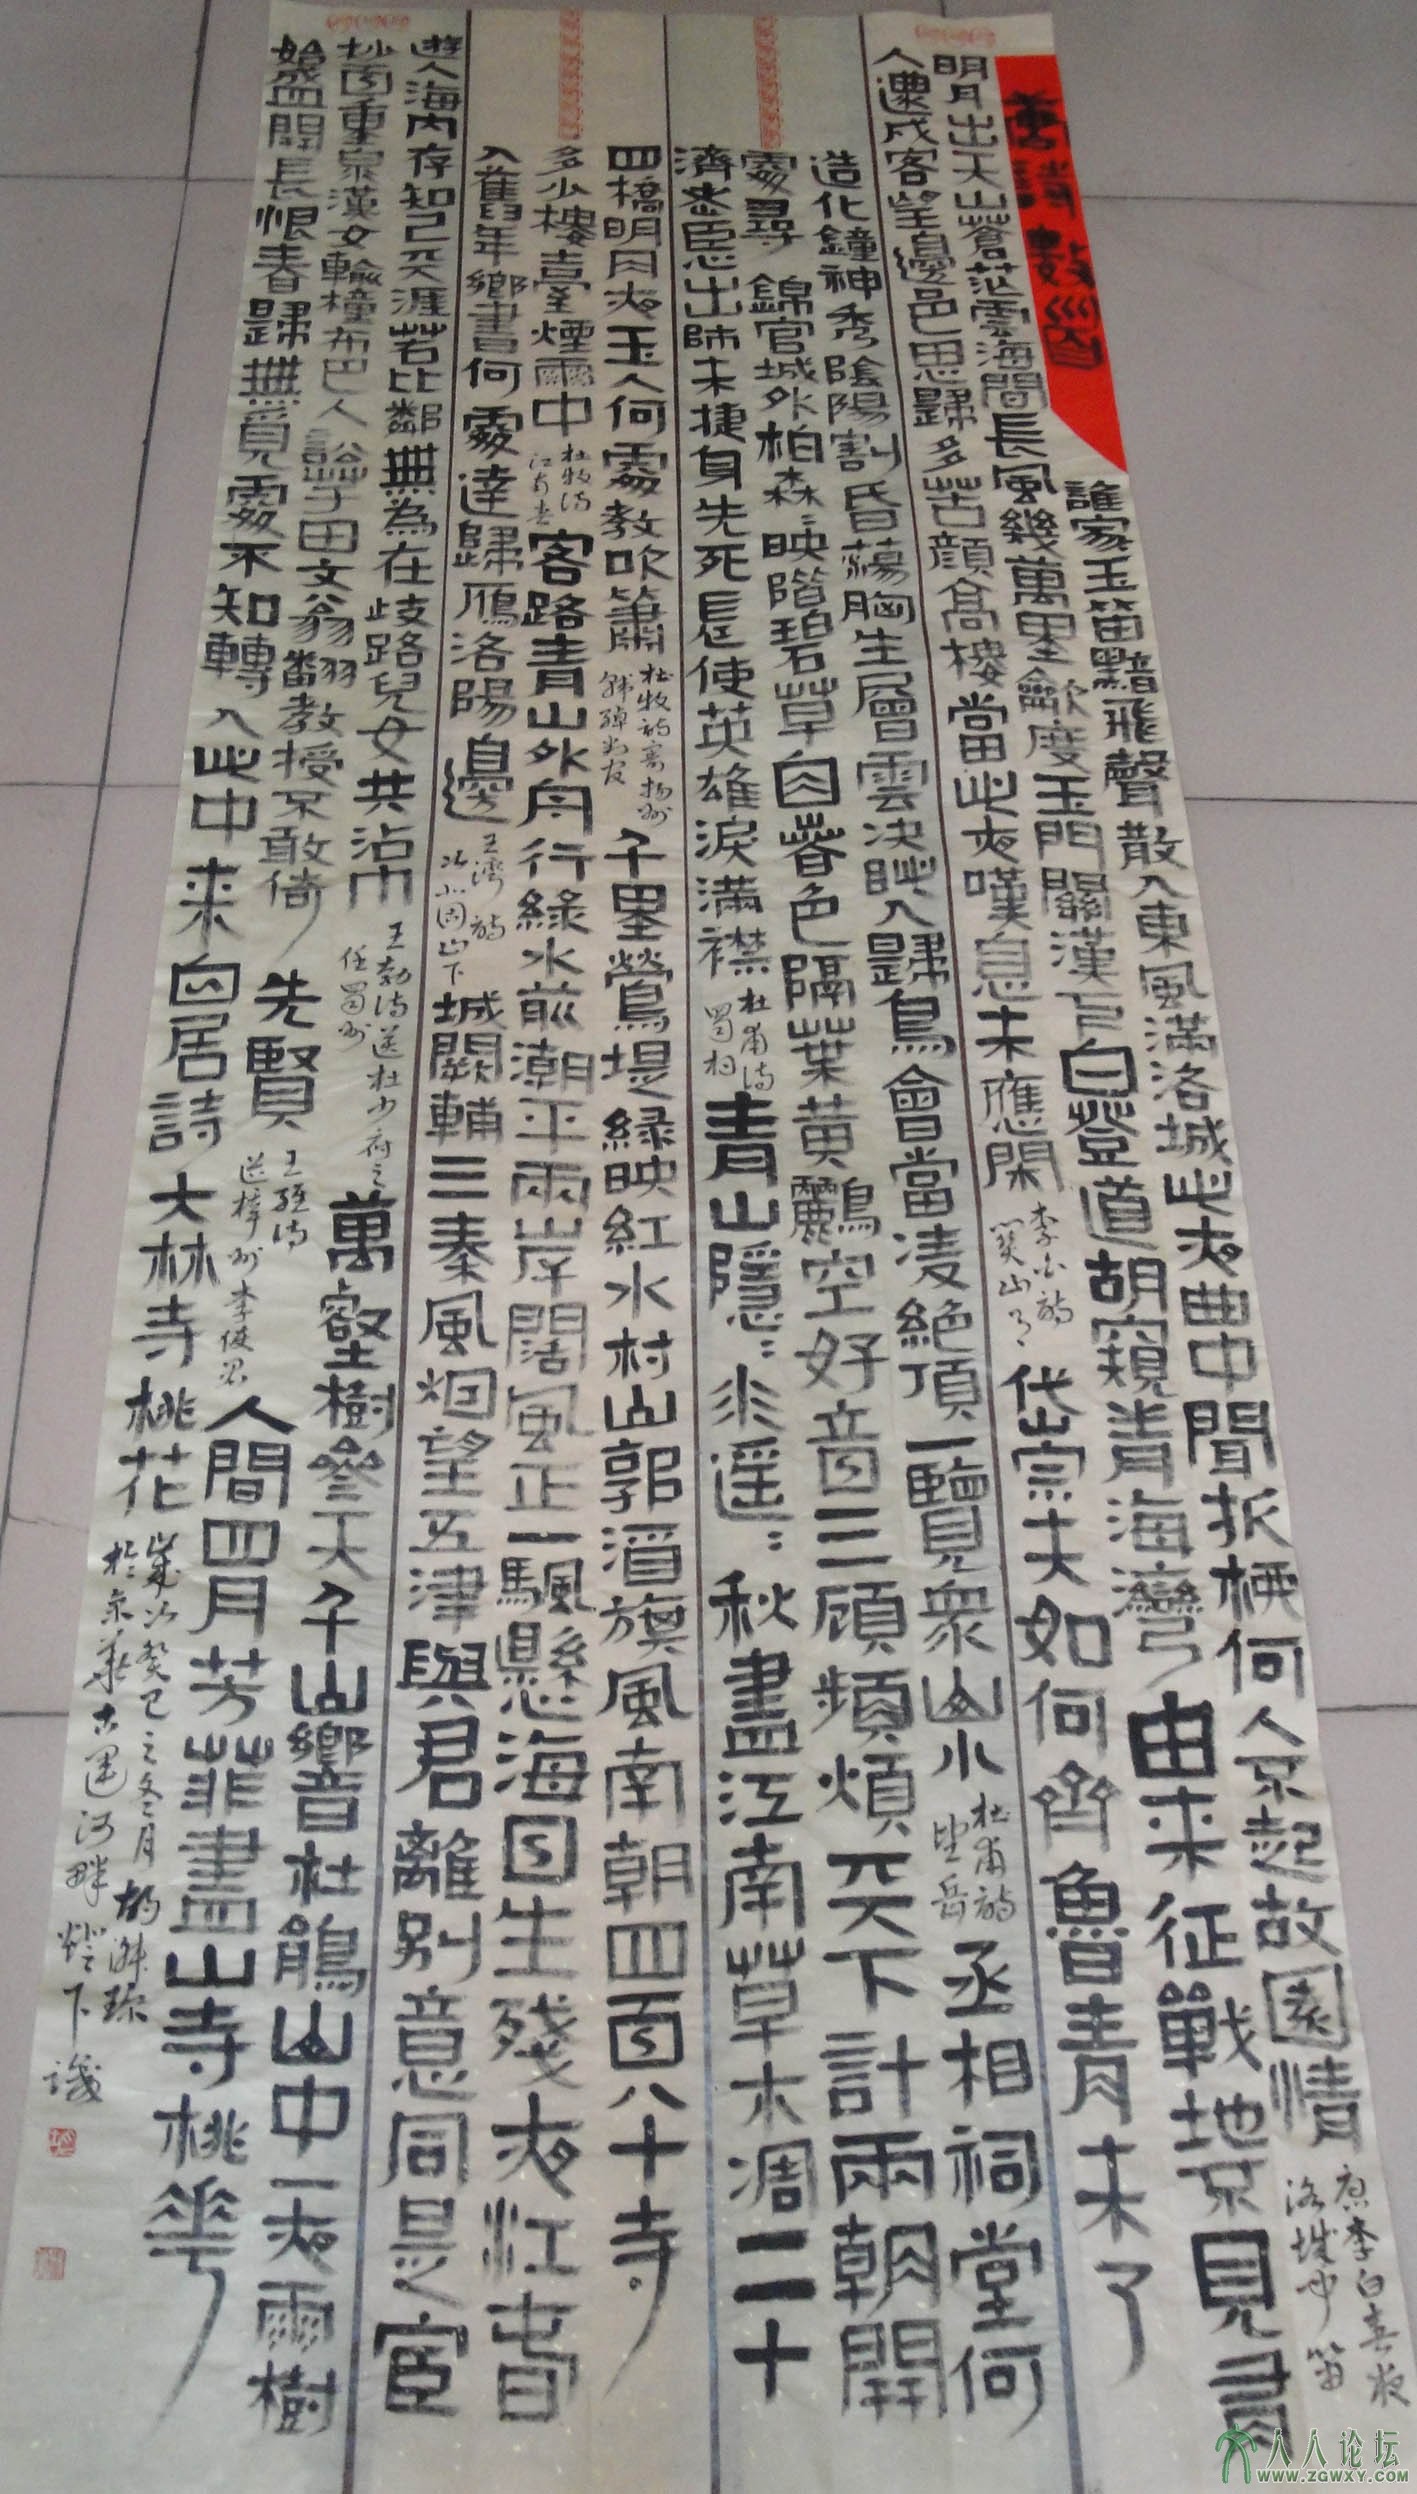 唐詩數首
誰家玉笛黯飛聲散入東風滿洛城此夜曲中聞折柳何人不起故園情
唐李白春夜
洛城中笛
明月出天山蒼茫雲海間長風幾萬里歙度玉門關漢下白登道胡窺青海灣由来征戰地不見有
人還戍客望邊邑思歸多苦顏高樓當此夜嘆息未應閑
李白詩
關山月
岱宗夫如何齊魯青未了
造化鐘神秀陰陽割昏蕩胸生層雲決眦入歸鳥會當凌絕頂一覽眾山小
杜甫詩
望岳
丞相祠堂何
處尋錦官城外柏森〻映階碧草自春色隔葉黃鸝空好音三顧頻煩天下計兩朝開
濟老臣心出師未捷身先死長使英雄淚滿襟
杜甫詩
蜀相
青山隱〻水遥〻秋盡江南草木凋二十
四橋明月夜玉人何處教吹簫
杜牧詩寄揚州
韓綽判官
千里鶯堤綠映紅水村山郭酒旗風南朝四百八十寺
多少樓臺煙雨中
杜牧詩
江南春
客路青山外舟行綠水前潮平兩岸闊風正一颿懸海日生殘夜江春
入舊年鄉書何處達歸雁洛陽邊
王灣詩
次北固山下
城闕輔三秦風烟望五津與君離別意同是宦
遊人海內存知己天涯若比鄰無為在歧路兒女共沾巾
王勃詩送杜少府之
任蜀州
萬壑樹參天千山響杜鵑山中一夜雨樹
杪百重泉漢女輸橦布巴人訟芋田文翁翻教授不敢倚先賢
王維詩
送梓州李使君
人間四月芳菲盡山寺桃華
始盛開長恨春歸無覓處不知轉入此中来白居詩大林寺桃花
歲次癸巳之冬月
於京華古運河畔燈下識
人人论坛
WWW.ZGWXY.COM